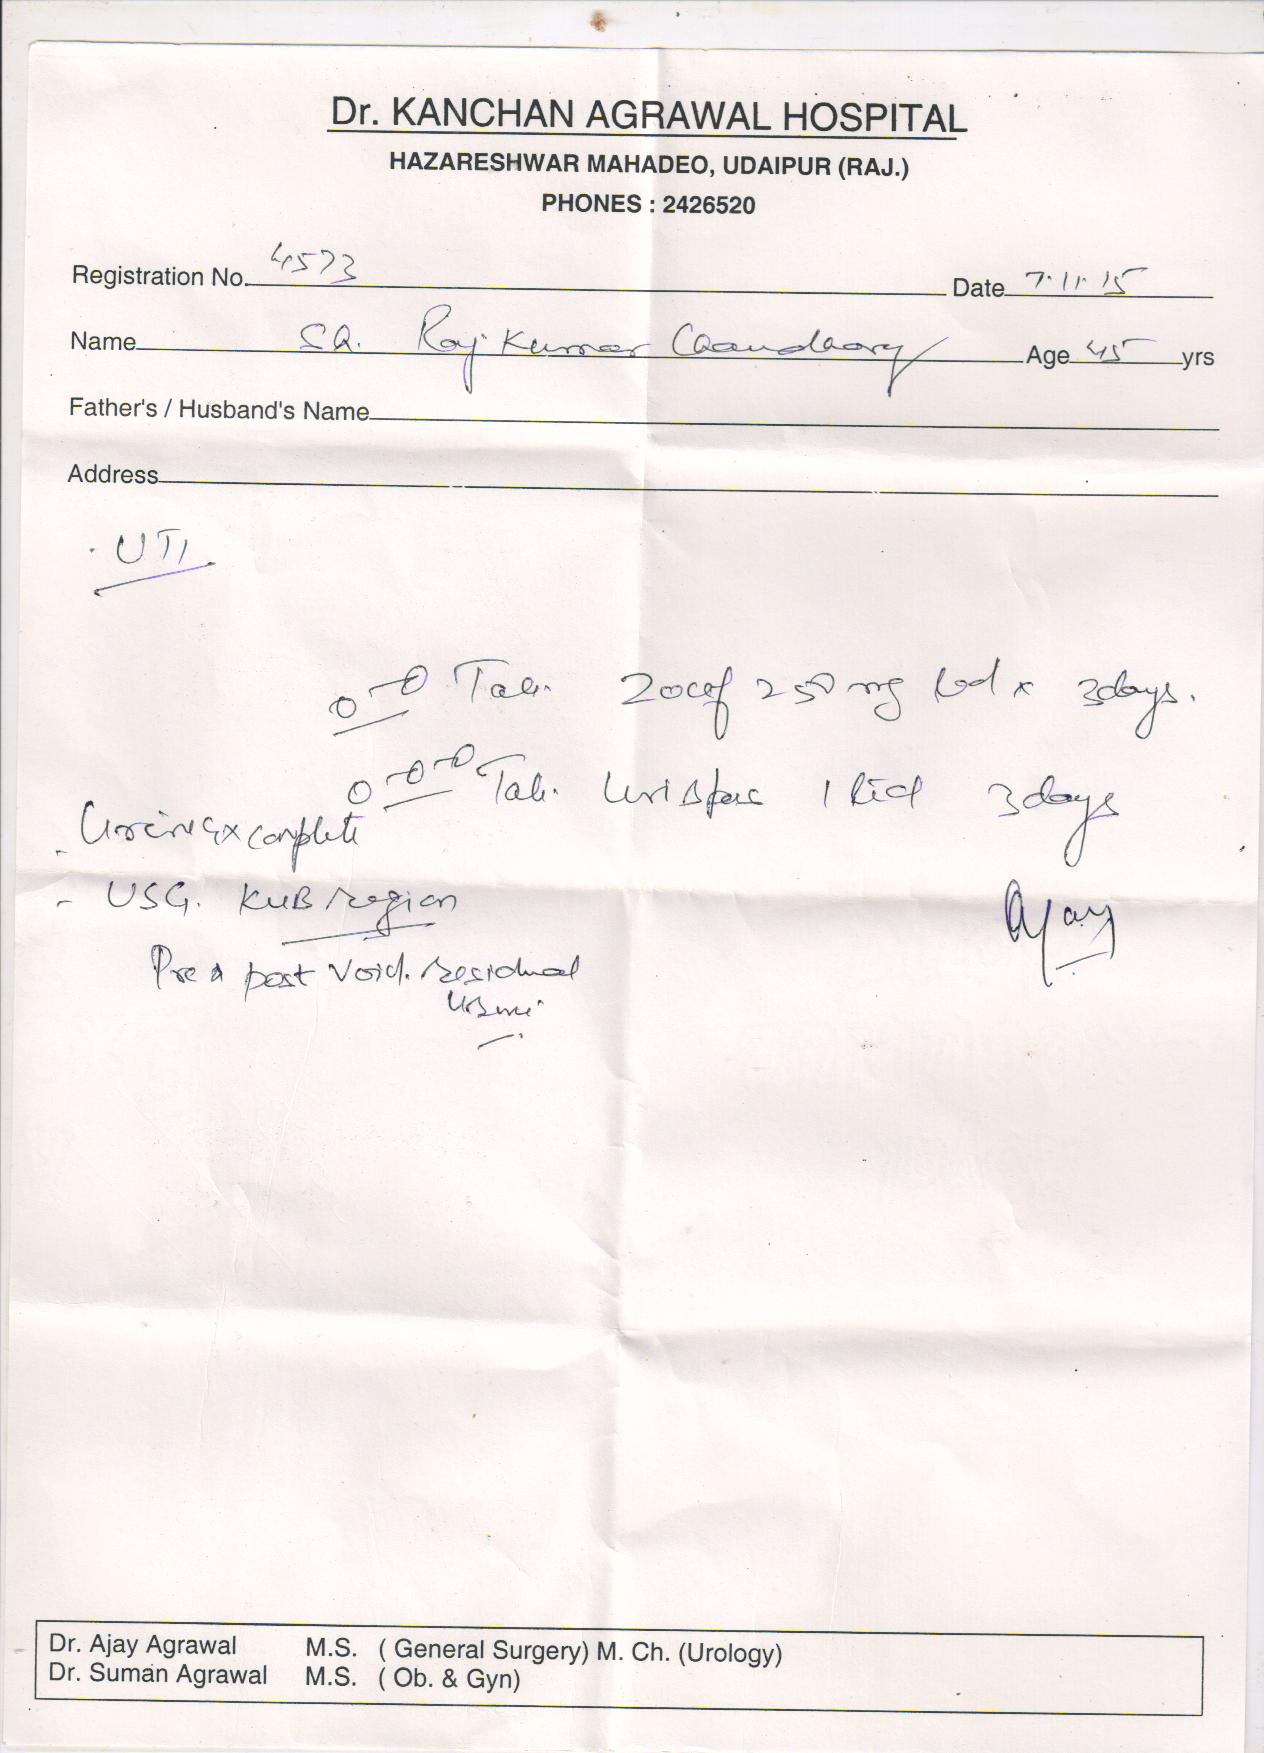 Dr. KANCHAN AGRAWAL HOSPITAL
HAZARESHWAR MAHADEO, UDAIPUR (RAJ.)
PHONES : 2426520
Registration No. 4573 Date 7.11.15
Name Raj Kumar Chaudhary Age 45 yrs
Father's / Husband's Name
Address
UTI
Tab. Zocef 250 mg bd x 3days.
Tab. Urispas 1 tid 3days
Urine Ex complete
- USG. KUB region
Ajay
Pre & post void. residual
urine
Dr. Ajay Agrawal M.S. ( General Surgery) M. Ch. (Urology)
Dr. Suman Agrawal M.S. ( Ob. & Gyn)